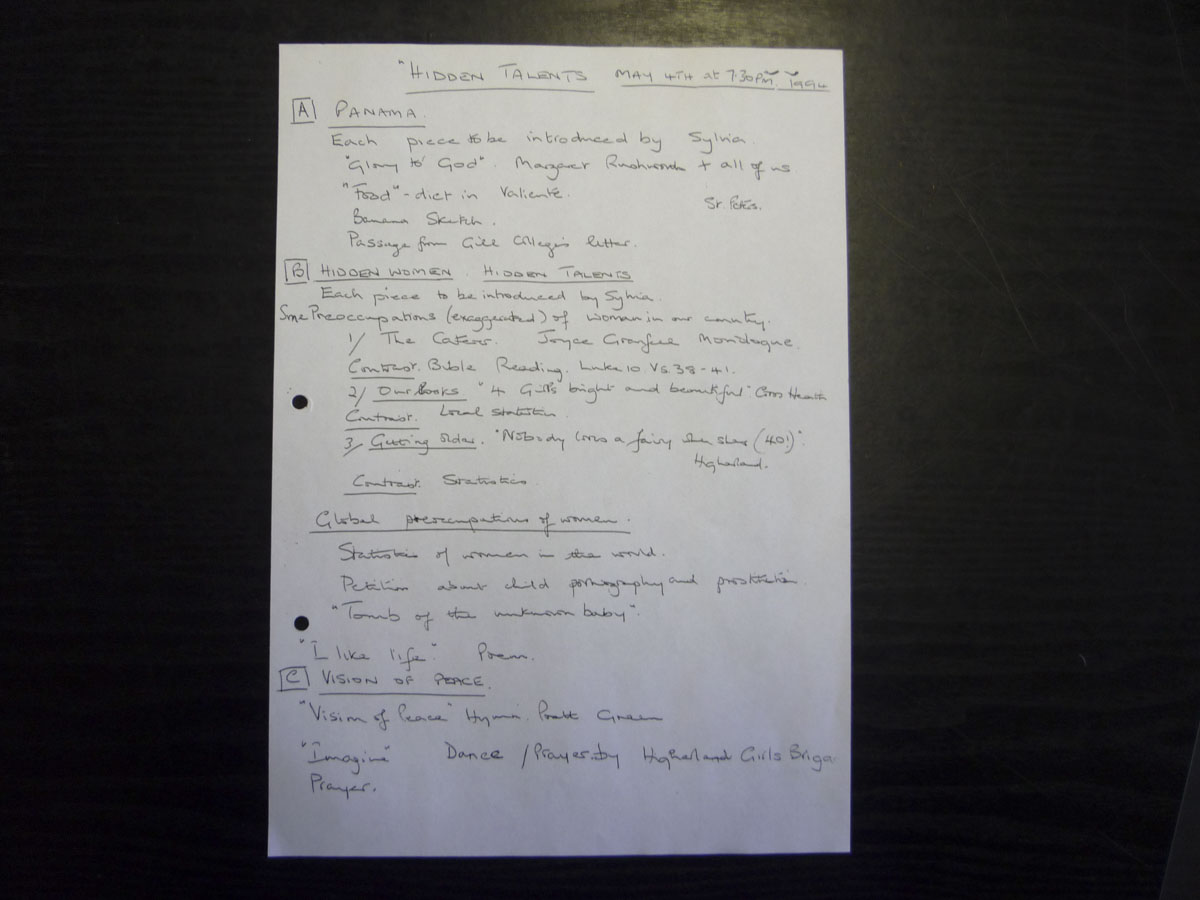 "HIDDEN TALENTS MAY 4TH at 7.30PM. 1994
A PANAMA.
Each piece to be introduced by Sylvia.
"Glory to God". Margaret Rushworth + all of us.
"Food" - diet in Valiente.
St. Peters.
Banana Sketch.
Passage from Gill letter.
B HIDDEN WOMEN. HIDDEN TALENTS
Each piece to be introduced by Sylvia.
Some Preoccupations (exaggerated) of women in our country.
1/ The Caterer. Joyce Grenfell Monologue.
Contrast. Bible Reading. Luke 10 Vs. 38-41.
2/ Our looks "4 Girls bright and beautiful" Cross Heath
Contrast. Local statistics.
3/ Getting older. "Nobody loves a fairy when shes (40!)".
Higherland.
Contrast. Statistics.
Global preoccupations of women.
Statistics of women in the world.
Petition about child pornography and prostitution.
"Tomb of the unknown baby".
"I like life". Poem.
C VISION OF PEACE.
"Vision of Peace" Hymn. Pratt Green
"Imagine" Dance / Prayer by Higherland Girls Briga
Prayer.